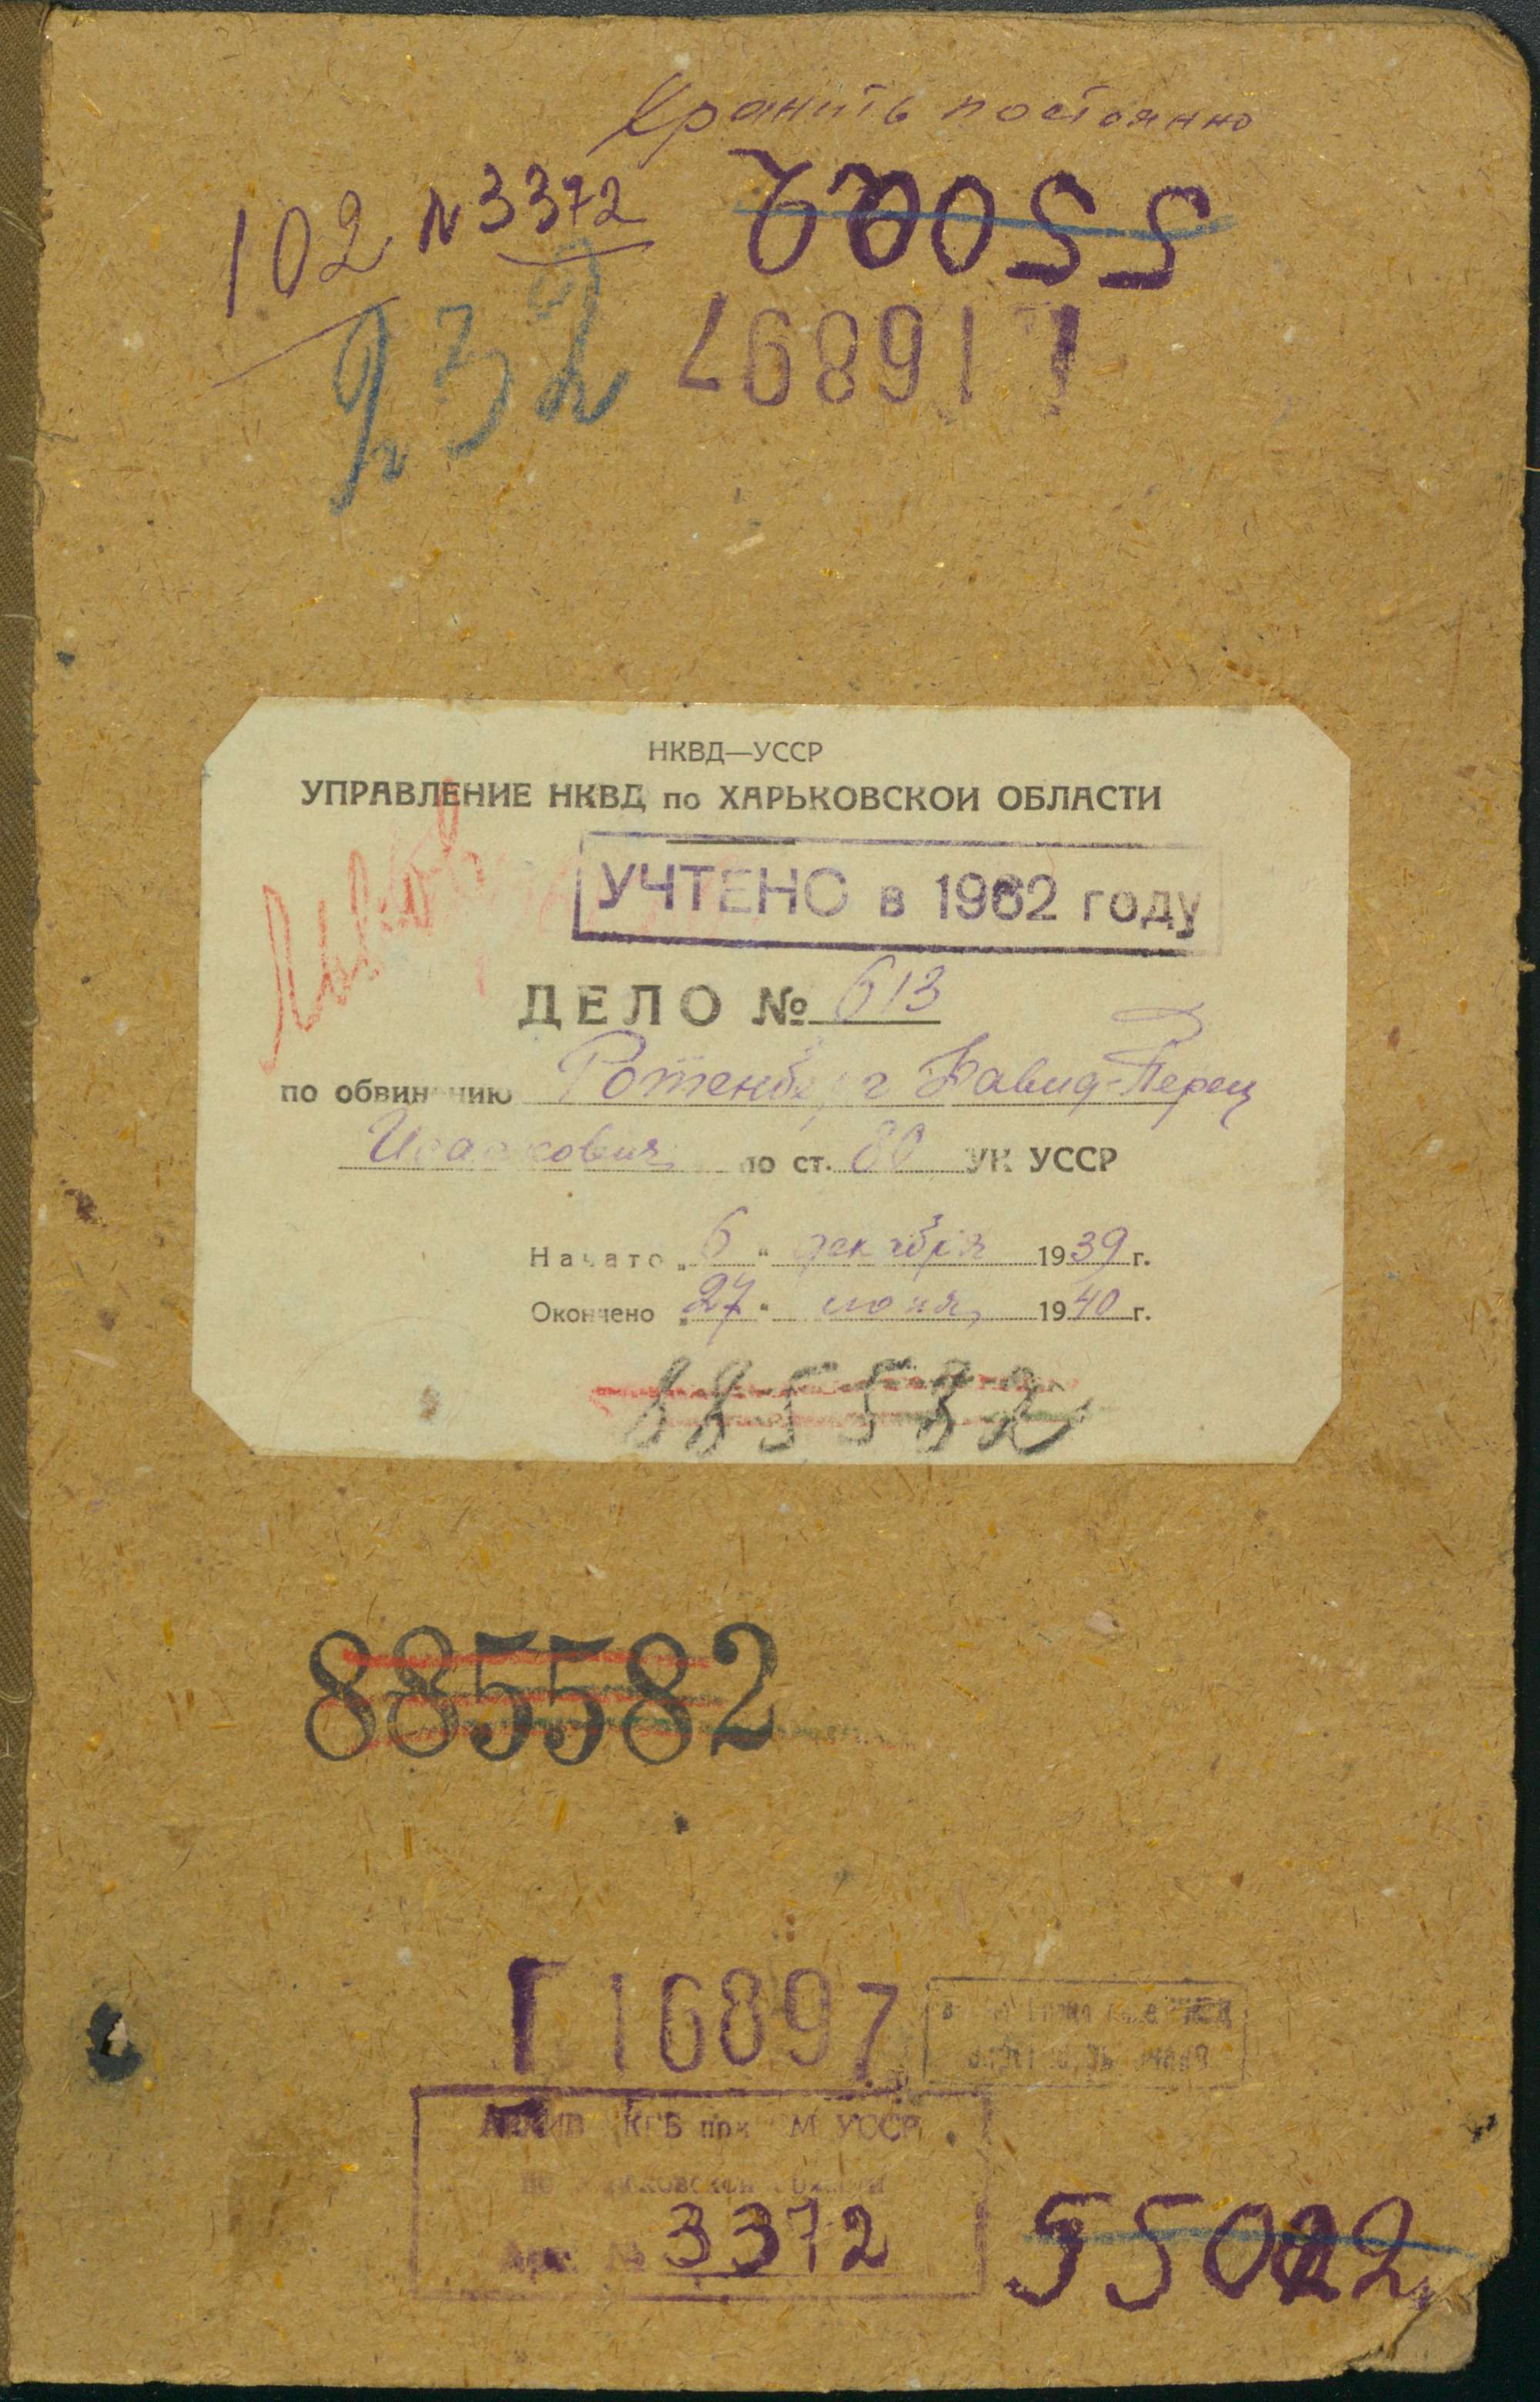 Хранить постоянно
102 N 3372
55022
232
116897
НКВД—УССР
УПРАВЛЕНИЕ НКВД по ХАРЬКОВСКОЙ ОБЛАСТИ
УЧТЕНО в 1962 году
ДЕЛО № 613
по обвинению Ротенберг Давид-Перец
Исаакович по ст. 80 УК УССР
Начато „6“ декабря 1939 г.
Окончено „27“ июня 1940 г.
885582
885582
116897
АРХИВ КГБ при СМ УССР
по Харьковской области
Арх. № 3372
55022